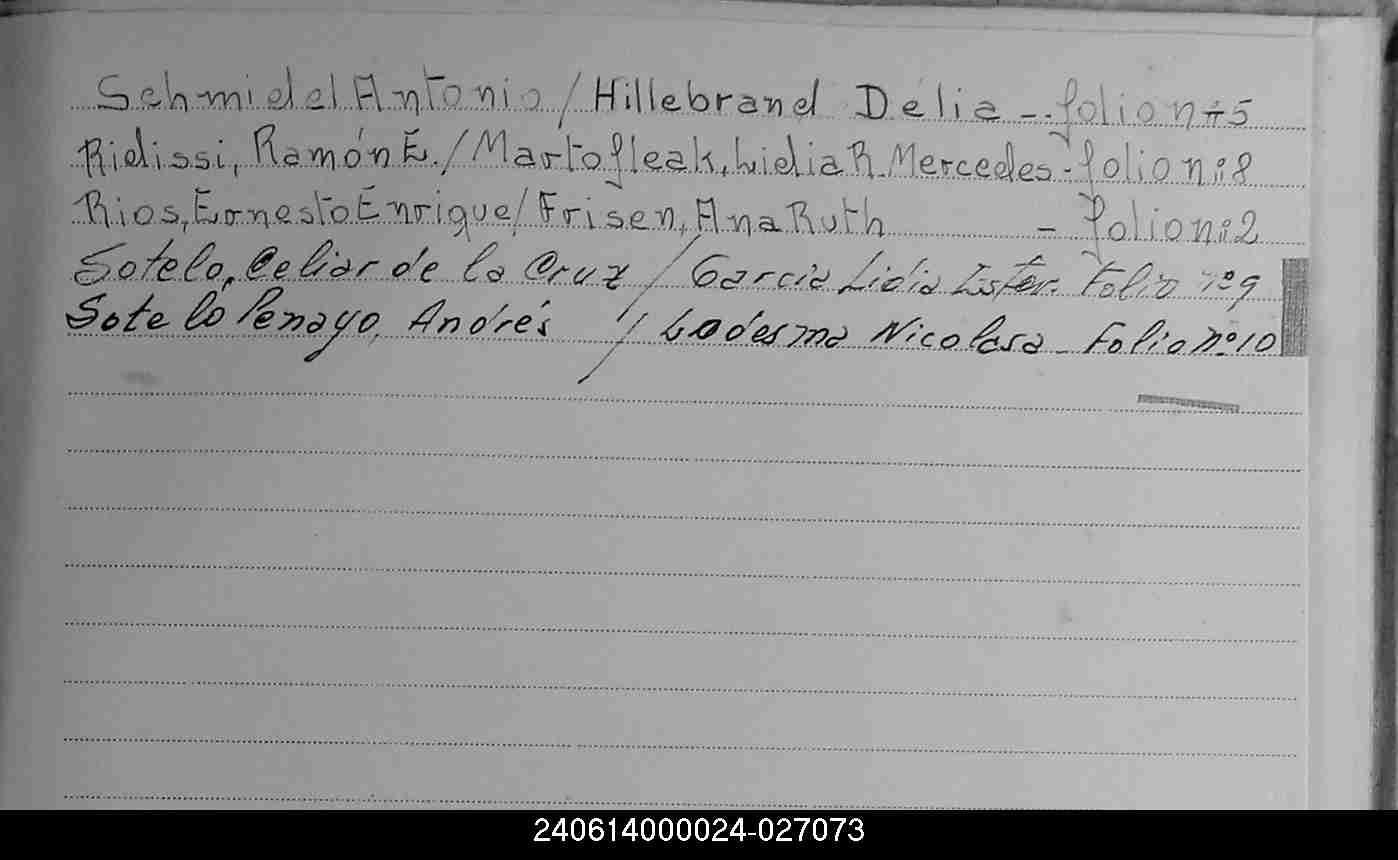 Schmidel Antonio / Hillebrand Delia -. folio nº 5
Ridissi, Ramón E. / Martofleak, Lidia R. Mercedes - folio nº 8
Rios, Ernesto Enrique / Frisen, Ana Ruth - folio nº 2
Sotelo, Celiar de la Cruz / Garcia Lidia Ester. Folio nº 9
Sotelo Penayo, Andrés / Ledesma Nicolasa - Folio nº 10
240614000024-027073